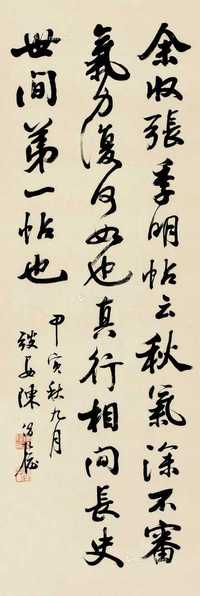 余收張季明帖云秋氣深不審
氣力復何如也真行相間長史
世间第一帖也
甲寅秋九月
陳